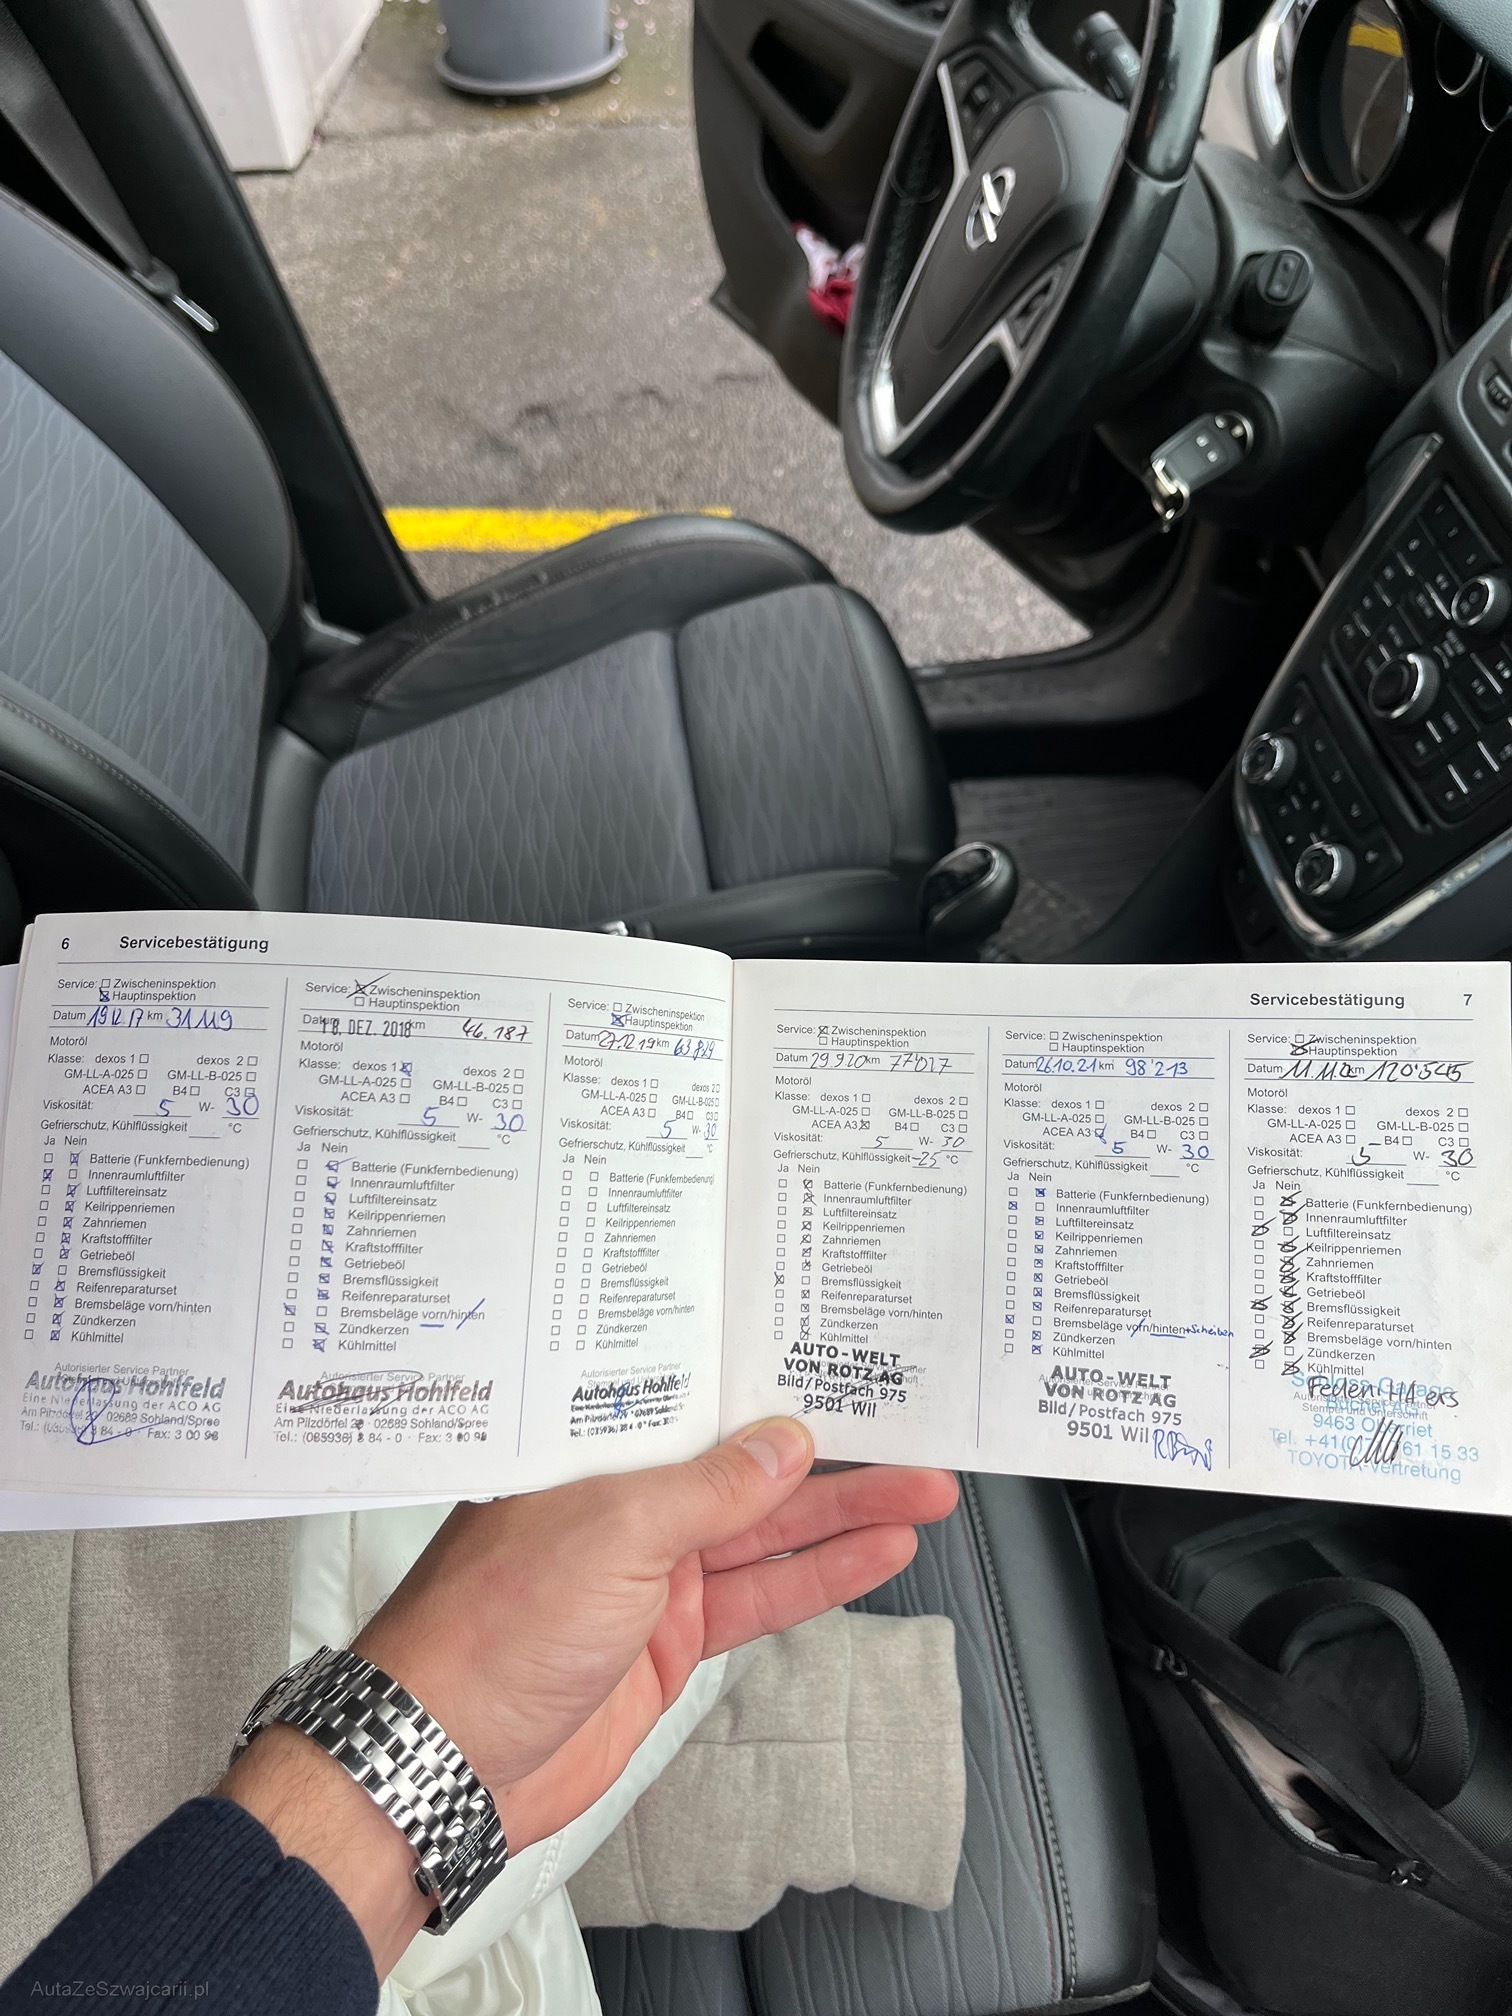 6 Servicebestätigung
Service: Zwischeninspektion
Hauptinspektion
Datum 19.12.17 km 31119
Motoröl
Klasse: dexos 1 dexos 2
GM-LL-A-025 GM-LL-B-025
ACEA A3 B4 C3
Viskosität: 5 W- 30
Gefrierschutz, Kühlflüssigkeit °C
Ja Nein
Batterie (Funkfernbedienung)
Innenraumluftfilter
Luftfiltereinsatz
Keilrippenriemen
Zahnriemen
Kraftstofffilter
Getriebeöl
Bremsflüssigkeit
Reifenreparaturset
Bremsbeläge vorn/hinten
Zündkerzen
Kühlmittel
Autorisierter Service Partner
Autohaus Hohlfeld
Eine Niederlassung der ACO AG
Am Pilzdörfel 20 · 02689 Sohland/Spree
84 - 0 · Fax: 3 00 98
Service: Zwischeninspektion
Hauptinspektion
Datum 18. DEZ. 2018 km 46.187
Motoröl
Klasse: dexos 1 dexos 2
GM-LL-A-025 GM-LL-B-025
ACEA A3 B4 C3
Viskosität: 5 W- 30
Gefrierschutz, Kühlflüssigkeit °C
Ja Nein
Batterie (Funkfernbedienung)
Innenraumluftfilter
Luftfiltereinsatz
Keilrippenriemen
Zahnriemen
Kraftstofffilter
Getriebeöl
Bremsflüssigkeit
Reifenreparaturset
Bremsbeläge vorn/hinten
Zündkerzen
Kühlmittel
Autorisierter Service Partner
Autohaus Hohlfeld
Eine Niederlassung der ACO AG
Am Pilzdörfel 20 · 02689 Sohland/Spree
Tel.: (035936) 3 84 - 0 · Fax: 3 00 98
Service: Zwischeninspektion
Hauptinspektion
Datum 27.12.19 km 63829
Motoröl
Klasse: dexos 1 dexos 2
GM-LL-A-025 GM-LL-B-025
ACEA A3 B4 C3
Viskosität: 5 W- 30
Gefrierschutz, Kühlflüssigkeit °C
Ja Nein
Batterie (Funkfernbedienung)
Innenraumluftfilter
Luftfiltereinsatz
Keilrippenriemen
Zahnriemen
Kraftstofffilter
Getriebeöl
Bremsflüssigkeit
Reifenreparaturset
Bremsbeläge vorn/hinten
Zündkerzen
Kühlmittel
Autorisierter Service Partner
Autohaus Hohlfeld
Servicebestätigung 7
Service: Zwischeninspektion
Hauptinspektion
Datum 29.9.20 km 77'017
Motoröl
Klasse: dexos 1 dexos 2
GM-LL-A-025 GM-LL-B-025
ACEA A3 B4 C3
Viskosität: 5 W- 30
Gefrierschutz, Kühlflüssigkeit -25 °C
Ja Nein
Batterie (Funkfernbedienung)
Innenraumluftfilter
Luftfiltereinsatz
Keilrippenriemen
Zahnriemen
Kraftstofffilter
Getriebeöl
Bremsflüssigkeit
Reifenreparaturset
Bremsbeläge vorn/hinten
Zündkerzen
Kühlmittel
AUTO-WELT
VON ROTZ AG
Bild/Postfach 975
9501 Wil
Service: Zwischeninspektion
Hauptinspektion
Datum 26.10.21 km 98'213
Motoröl
Klasse: dexos 1 dexos 2
GM-LL-A-025 GM-LL-B-025
ACEA A3 B4 C3
Viskosität: 5 W- 30
Gefrierschutz, Kühlflüssigkeit °C
Ja Nein
Batterie (Funkfernbedienung)
Innenraumluftfilter
Luftfiltereinsatz
Keilrippenriemen
Zahnriemen
Kraftstofffilter
Getriebeöl
Bremsflüssigkeit
Reifenreparaturset
Bremsbeläge vorn/hinten + Scheiben
Zündkerzen
Kühlmittel
AUTO-WELT
VON ROTZ AG
Bild/Postfach 975
9501 Wil
Service: Zwischeninspektion
Hauptinspektion
Datum km 120'545
Motoröl
Klasse: dexos 1 dexos 2
GM-LL-A-025 GM-LL-B-025
ACEA A3 B4 C3
Viskosität: 5 W- 30
Gefrierschutz, Kühlflüssigkeit °C
Ja Nein
Batterie (Funkfernbedienung)
Innenraumluftfilter
Luftfiltereinsatz
Keilrippenriemen
Zahnriemen
Kraftstofffilter
Getriebeöl
Bremsflüssigkeit
Reifenreparaturset
Bremsbeläge vorn/hinten
Zündkerzen
Kühlmittel
Federn HA ers
Büchel AG
9463 Oberriet
Tel. 61 15 33
TOYOTA-Vertretung
TISSOT
AutaZeSzwajcarii.pl